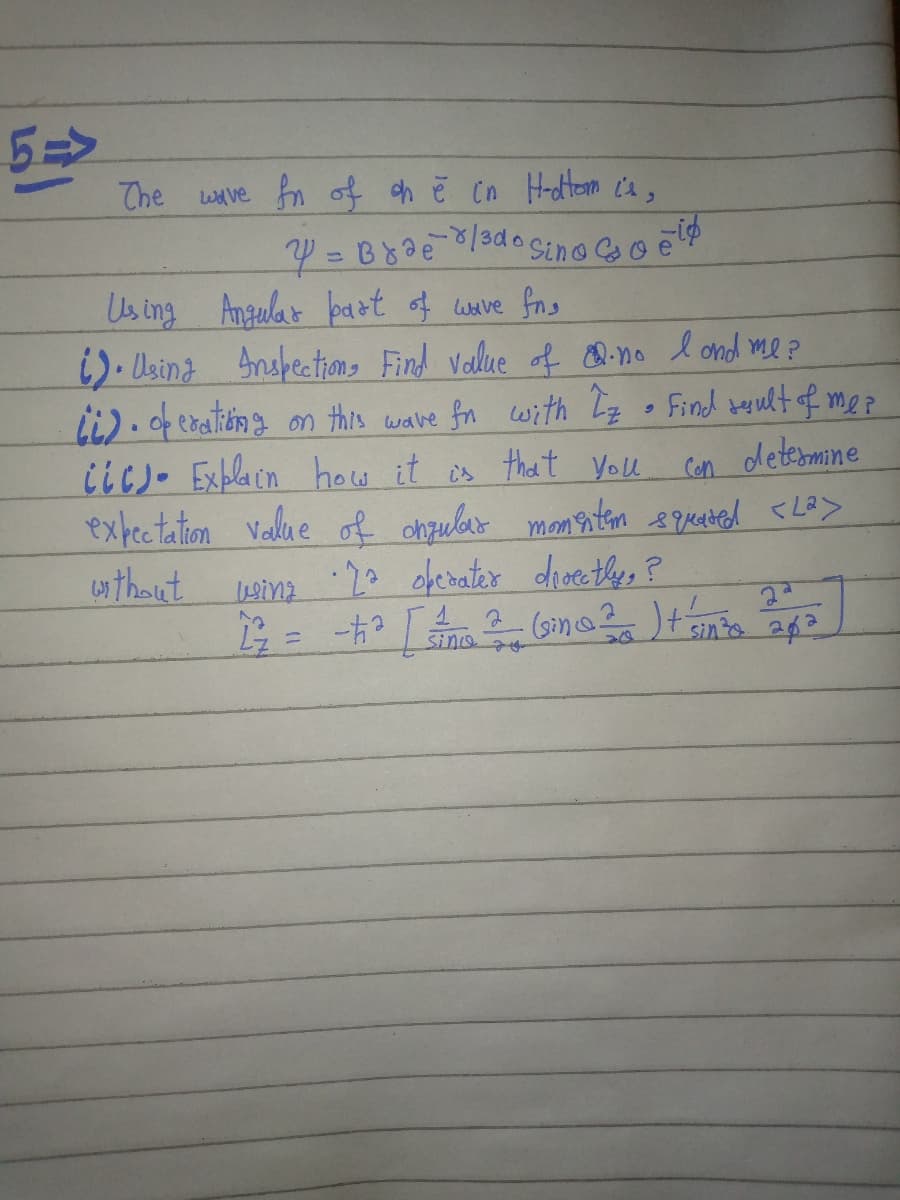 5⇒
The wave fn of an ē in H-atom is,
ψ = B r²e^(-r/3a₀) Sinθ Cosθ e^(-iϕ)
Using Angular part of wave fn,
i). Using Inspection, Find value of Q.no l and ml?
ii). operating on this wave fn with L̂z. Find result of ml?
iii). Explain how it is that you can determine
expectation value of angular momentem squared <L²>
without using L̂² operater directly,?
L̂z² = -ħ² [1/sinθ ∂/∂θ (sinθ ∂/∂θ) + 1/sin²θ ∂²/∂ϕ²]